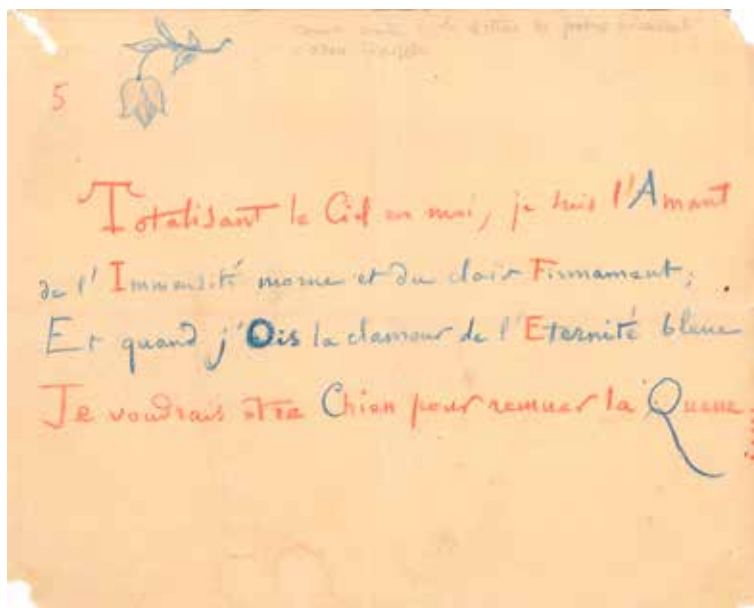 5
Totalisant le Ciel en moi, je suis l'Amant
de l'Immensité morne et du clair Firmament;
Et quand j'Ois la clameur de l'Eternité bleue
Je voudrais être Chien pour remuer la Queue